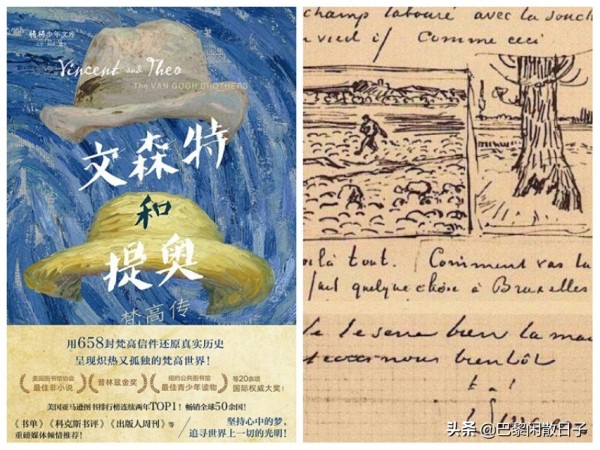 Vincent and Theo
The VAN GOGH BROTHERS
文森特
和
提奥
梵高传
用658封梵高信件还原真实历史
呈现炽热又孤独的梵高世界！
美国图书馆协会
最佳非小说
普林兹金奖
纽约公共图书馆
最佳青少年读物
等20余项
国际权威大奖！
美国亚马逊图书排行榜连续两年TOP1！畅销全球50余国！
《书单》《科克斯书评》《出版人周刊》等
重磅媒体倾情推荐！
坚持心中的梦，
追寻世界上一切的光明！
champ labouré avec la souche
vieil if Comme ceci
voilà tout. Comment vas tu
fait quelque chose à Bruxelles
bien la main
bientôt
t. à t.
头条 @巴黎闲散日子